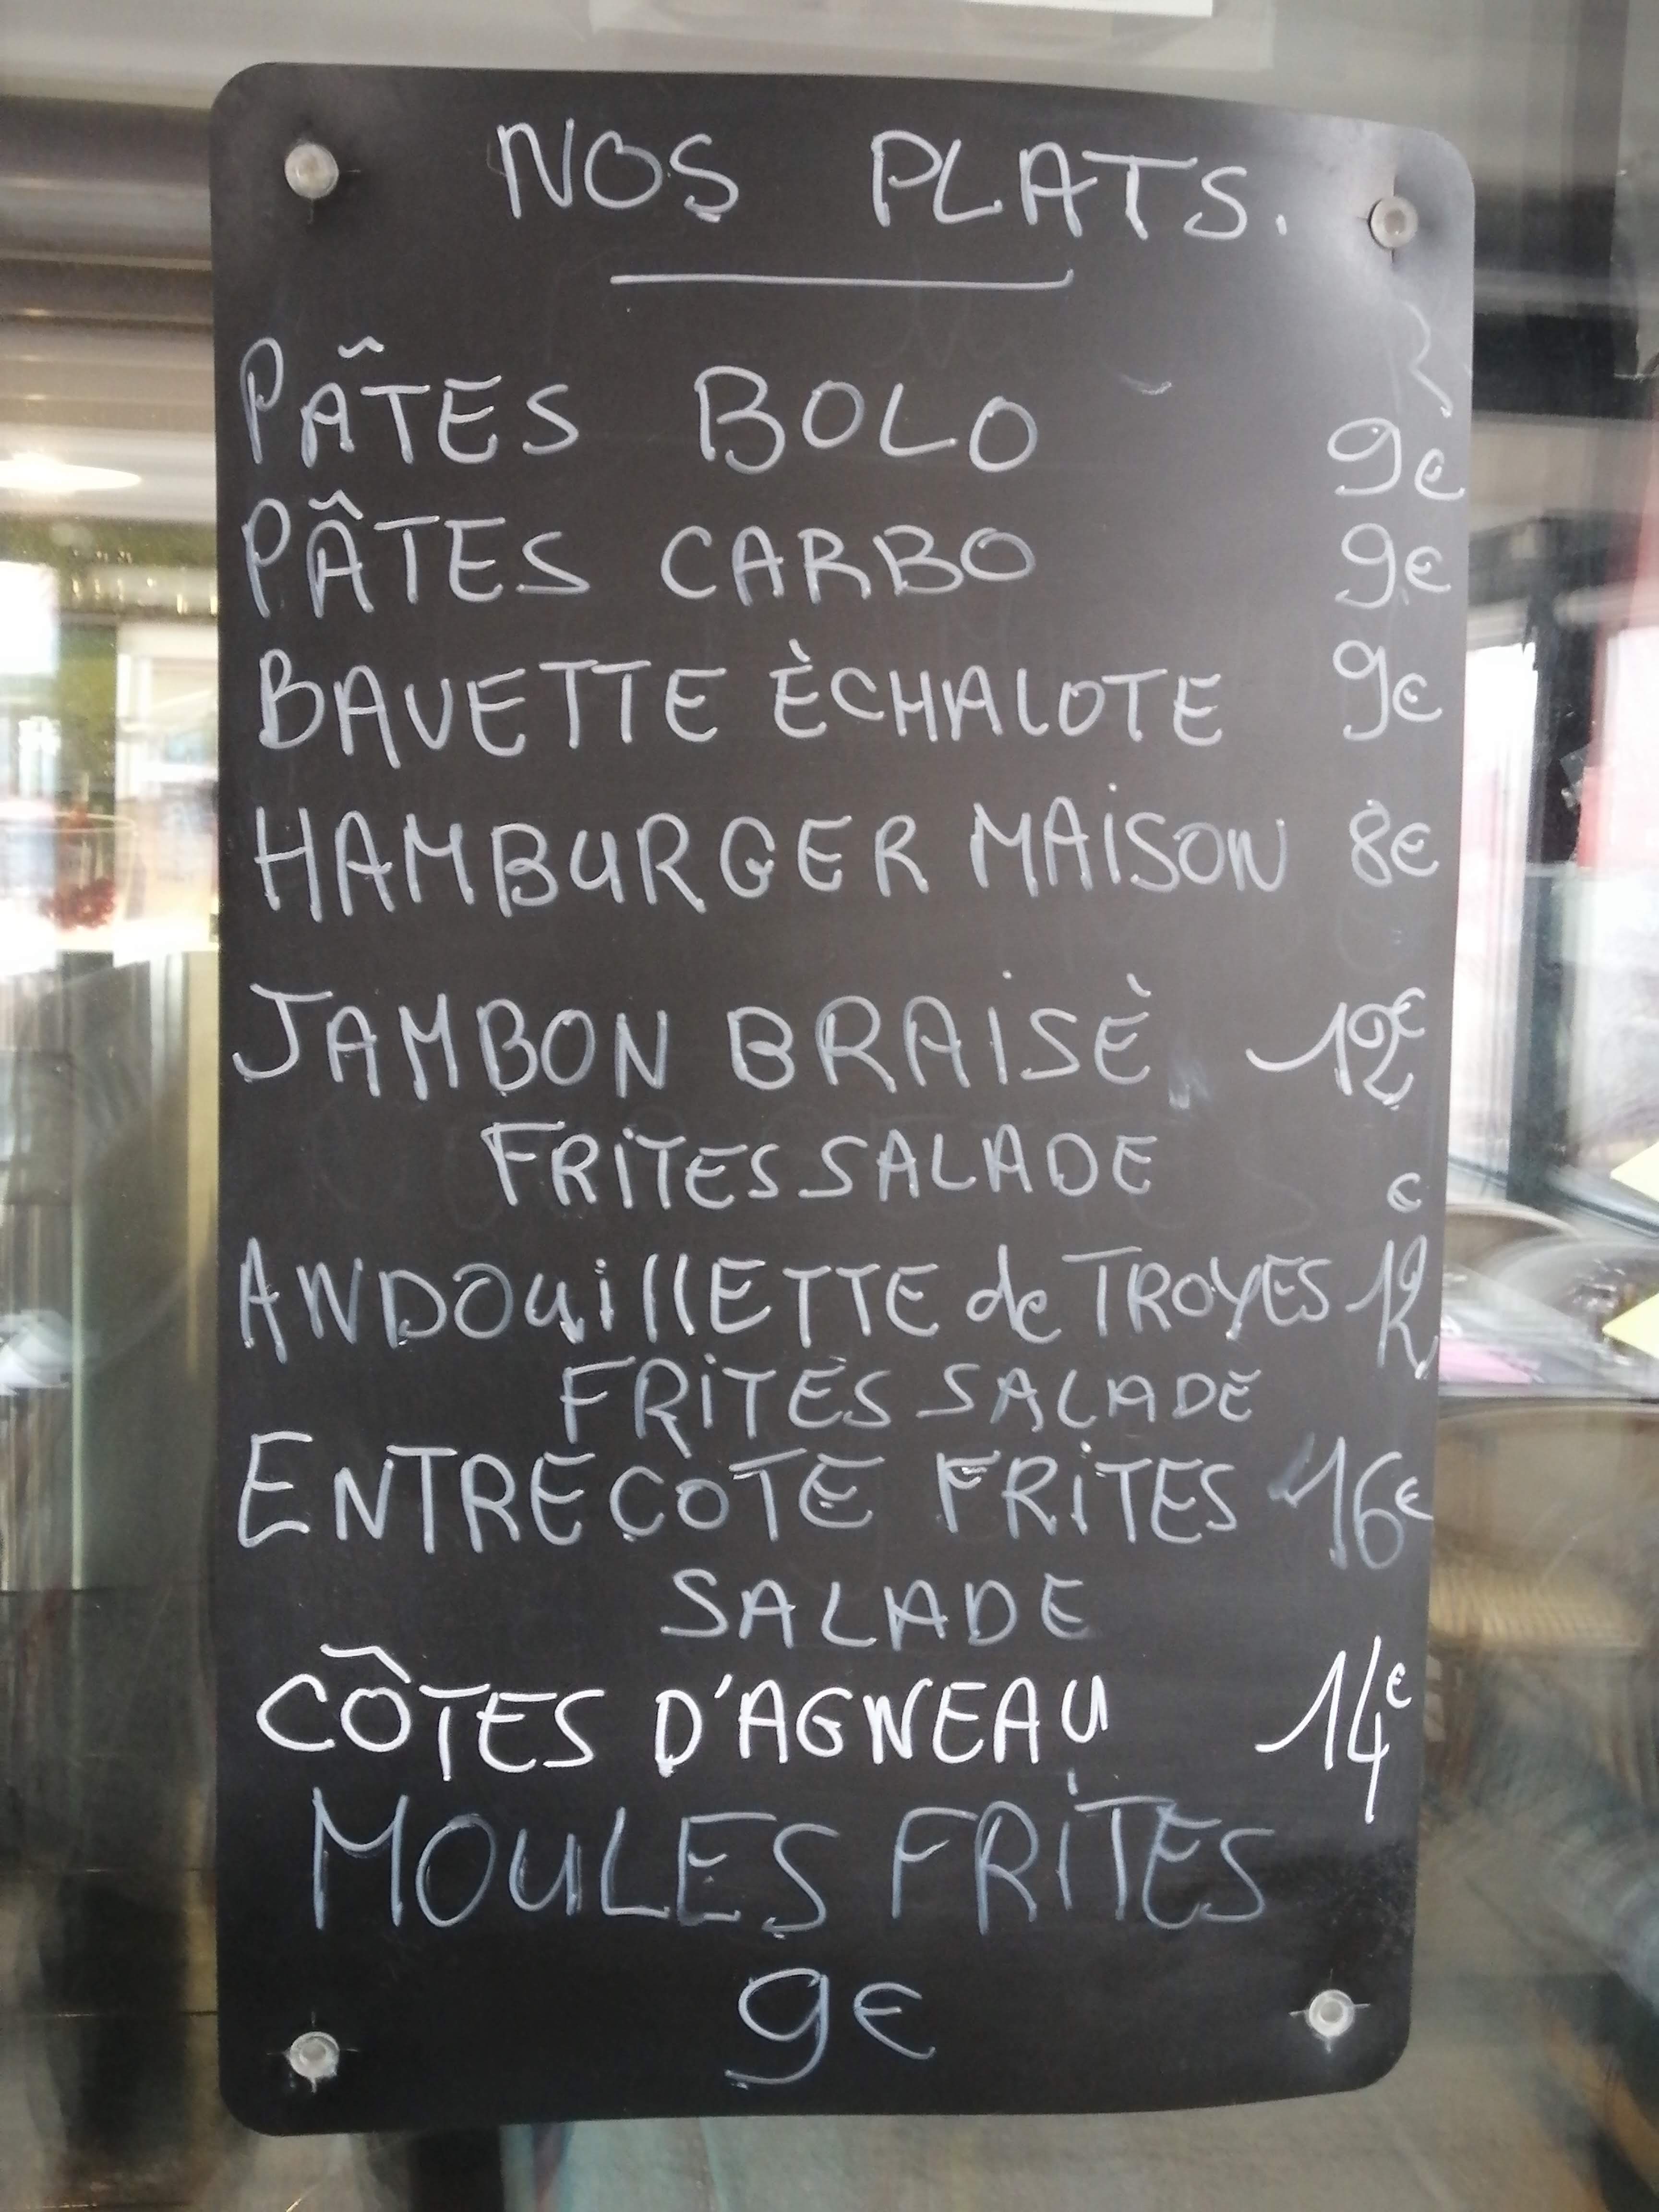 NOS PLATS.
PÂTES BOLO 9€
PÂTES CARBO 9€
BAVETTE ÈCHALOTE 9€
HAMBURGER MAiSON 8€
JAMBON BRAISÈ 12€
FRiTES SALADE
ANDOUillETTE de TROYES 12€
FRiTES SALADE
ENTRECOTE FRiTES 16€
SALADE
CÔTES D'AGNEAU 14€
MOULES FRiTES
9€